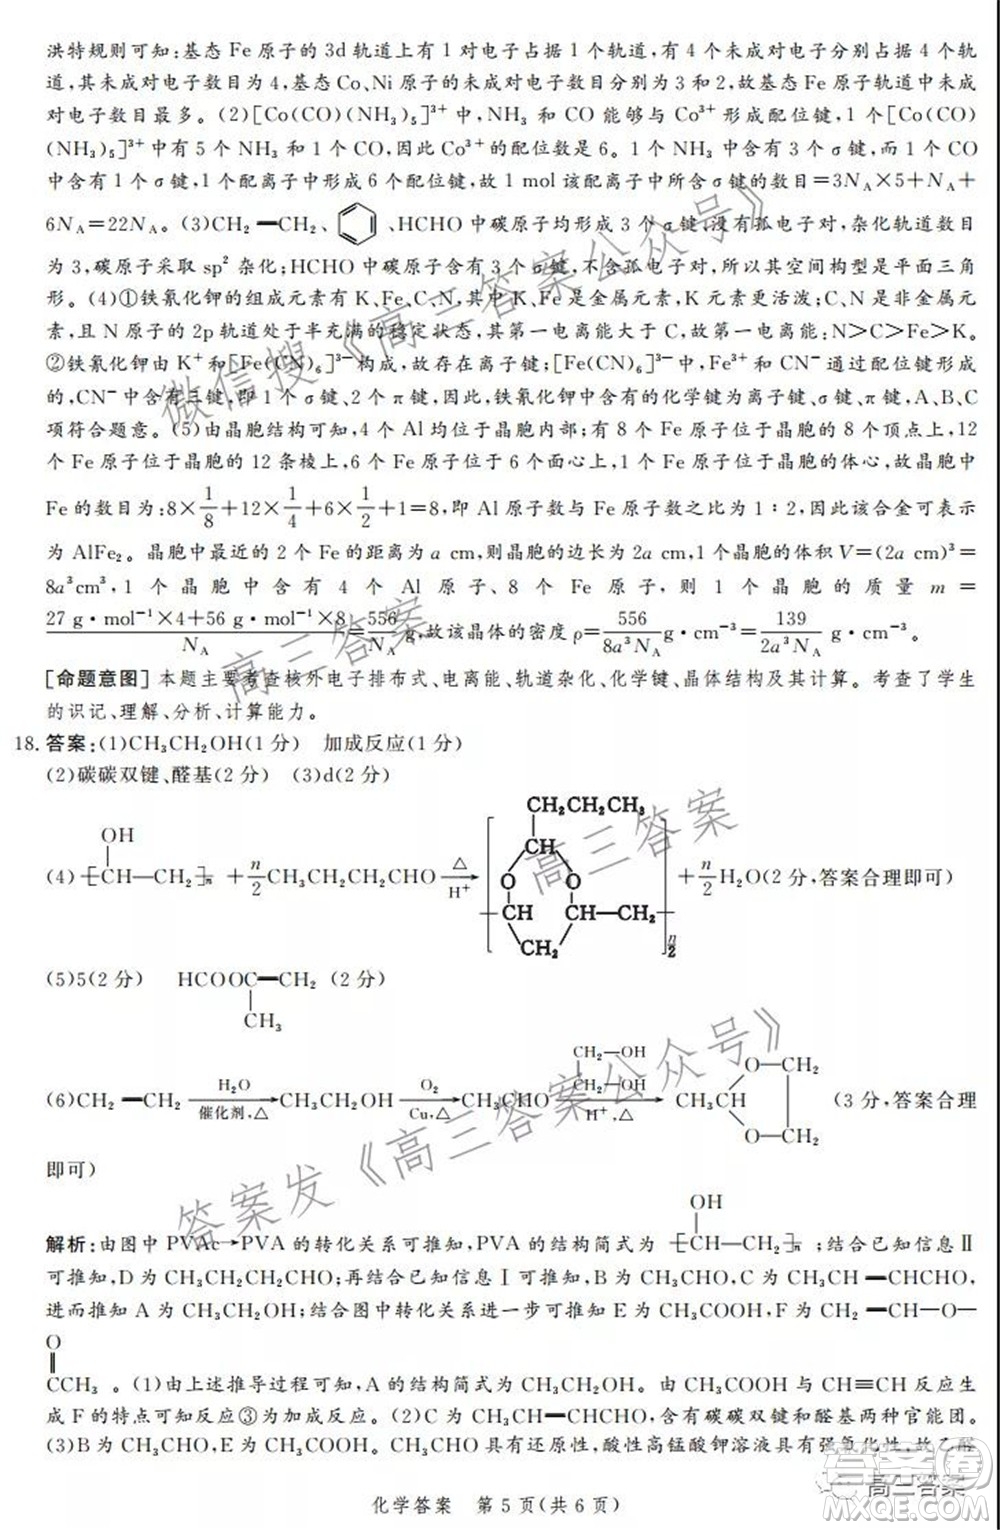 洪特规则可知:基态 Fe 原子的 3d 轨道上有 1 对电子占据 1 个轨道,有 4 个未成对电子分别占据 4 个轨
道,其未成对电子数目为 4,基态 Co、Ni 原子的未成对电子数目分别为 3 和 2,故基态 Fe 原子轨道中未成
对电子数目最多。(2)[Co(CO)(NH₃)₅]³⁺ 中,NH₃ 和 CO 能够与 Co³⁺ 形成配位键,1 个[Co(CO)
(NH₃)₅]³⁺ 中有 5 个 NH₃ 和 1 个 CO,因此 Co³⁺ 的配位数是 6。1 个 NH₃ 中含有 3 个 σ 键,而 1 个 CO
中含有 1 个 σ 键,1 个配离子中形成 6 个配位键,故 1 mol 该配离子中所含 σ 键的数目=3N_A×5+N_A+
6N_A=22N_A。(3)CH₂═CH₂、 ,HCHO 中碳原子均形成 3 个 σ 键,没有孤电子对,杂化轨道数目
为 3,碳原子采取 sp² 杂化;HCHO 中碳原子含有 3 个 σ 键,不含孤电子对,所以其空间构型是平面三角
形。(4)①铁氰化钾的组成元素有 K、Fe、C、N,其中 K、Fe 是金属元素,K 更活泼;C、N 是非金属元
素,且 N 原子的 2p 轨道处于半充满的稳定状态,其第一电离能大于 C,故第一电离能:N>C>Fe>K。
②铁氰化钾由 K⁺ 和[Fe(CN)₆]³⁻ 构成,故存在离子键;[Fe(CN)₆]³⁻ 中,Fe³⁺ 和 CN⁻ 通过配位键形成
的,CN⁻ 中含有三键,即 1 个 σ 键、2 个 π 键,因此,铁氰化钾中含有的化学键为离子键、σ 键、π 键,A、B、C
项符合题意。(5)由晶胞结构可知,4 个 Al 均位于晶胞内部;有 8 个 Fe 原子位于晶胞的 8 个顶点上,12
个 Fe 原子位于晶胞的 12 条棱上,6 个 Fe 原子位于 6 个面心上,1 个 Fe 原子位于晶胞的体心,故晶胞中
Fe 的数目为:8×1/8+12×1/4+6×1/2+1=8,即 Al 原子数与 Fe 原子数之比为 1∶2,因此该合金可表示
为 AlFe₂。晶胞中最近的 2 个 Fe 的距离为 a cm,则晶胞的边长为 2a cm,1 个晶胞的体积 V=(2a cm)³=
8a³cm³,1 个晶胞中含有 4 个 Al 原子、8 个 Fe 原子,则 1 个晶胞的质量 m=
27 g·mol⁻¹×4+56 g·mol⁻¹×8/N_A=556/N_A g,故该晶体的密度 ρ=556/8a³N_A g·cm⁻³=139/2a³N_A g·cm⁻³。
[命题意图]本题主要考查核外电子排布式、电离能、轨道杂化、化学键、晶体结构及其计算。考查了学生
的识记、理解、分析、计算能力。
18.答案:(1)CH₃CH₂OH(1 分) 加成反应(1 分)
(2)碳碳双键、醛基(2 分) (3)d(2 分)
CH₂CH₂CH₃
OH
CH
(4)[CH—CH₂]ₙ +n/2CH₃CH₂CH₂CHO △ H⁺ → [ O O CH CH—CH₂ CH₂ ]n/2 +n/2H₂O(2 分,答案合理即可)
(5)5(2 分) HCOOC═CH₂ (2 分)
CH₃
CH₂—OH
(6)CH₂═CH₂ H₂O 催化剂,△ → CH₃CH₂OH O₂ Cu,△ → CH₃CHO CH₂—OH H⁺,△ → CH₃CH O—CH₂ O—CH₂ (3 分,答案合理
即可)
OH
解析:由图中 PVAc→PVA 的转化关系可推知,PVA 的结构简式为 [CH—CH₂]ₙ ;结合已知信息Ⅱ
可推知,D 为 CH₃CH₂CH₂CHO;再结合已知信息Ⅰ可推知,B 为 CH₃CHO,C 为 CH₃CH═CHCHO,
进而推知 A 为 CH₃CH₂OH;结合图中转化关系进一步可推知 E 为 CH₃COOH,F 为 CH₂═CH—O—
O
CCH₃ 。(1)由上述推导过程可知,A 的结构简式为 CH₃CH₂OH。由 CH₃COOH 与 CH≡CH 反应生
成 F 的特点可知反应③为加成反应。(2)C 为 CH₃CH═CHCHO,含有碳碳双键和醛基两种官能团。
(3)B 为 CH₃CHO,E 为 CH₃COOH。CH₃CHO 具有还原性,酸性高锰酸钾溶液具有强氧化性,故乙醛
化学答案 第 5 页(共 6 页)
微信搜《高三答案公众号》
高三答案
高三答案
答案发《高三答案公众号》
高三答案
答案圈
MXQE.COM